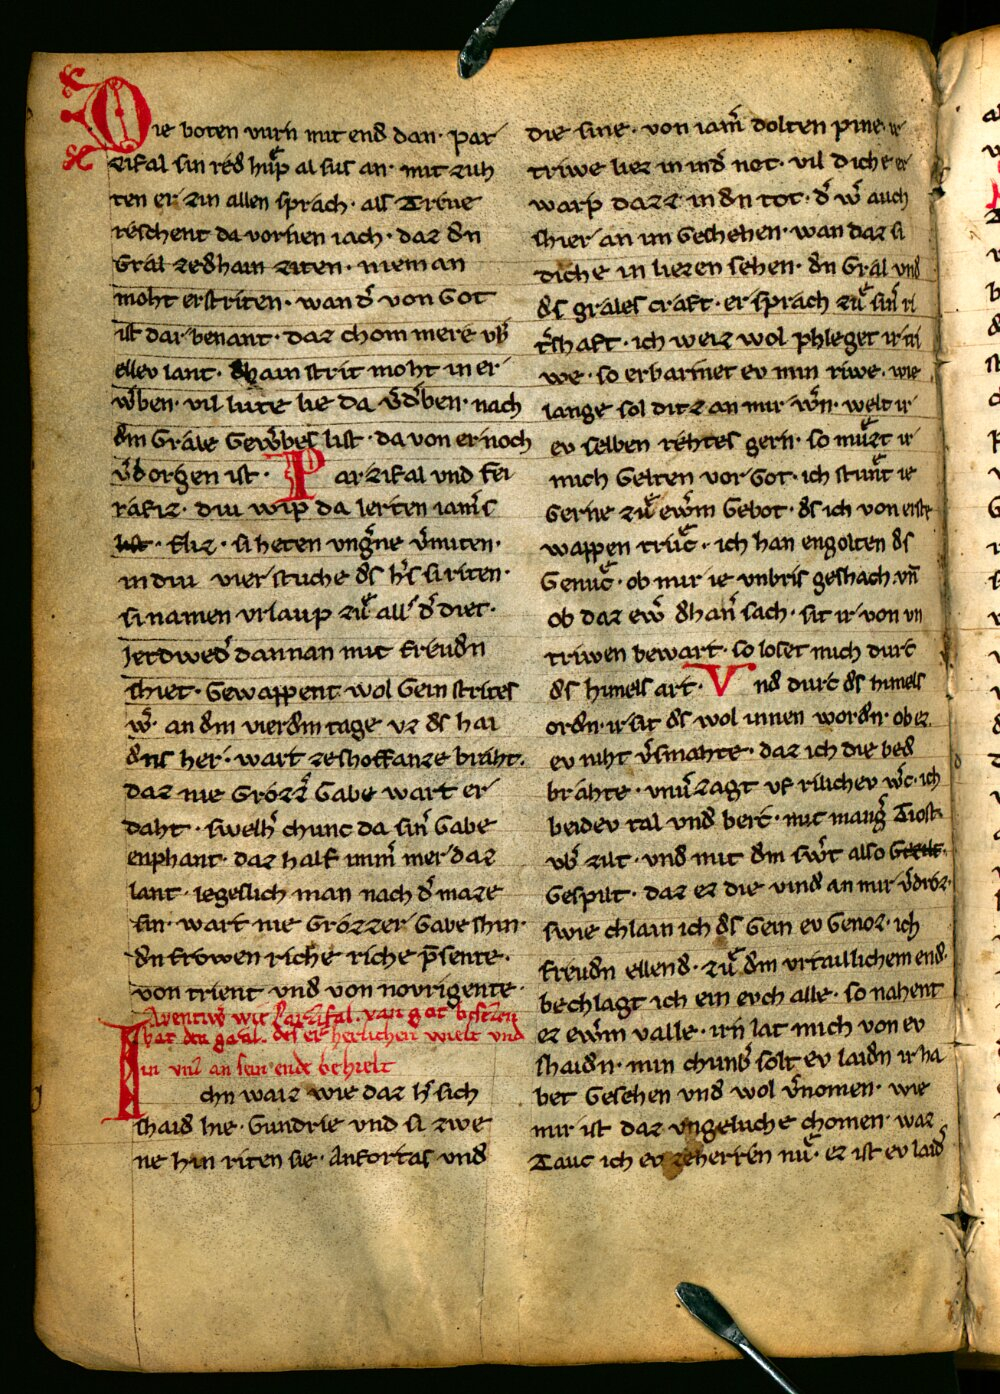 Die boten vurn mit end dan · par
zifal sin red hůp al sus an · mit zuh
ten er zin allen sprach · als Trive
reschent da vornen iach · daz dn
Gral zedhain ziten · nieman
moht erstriten · wan d͛ von Got
ist dar benant · daz chom mere vb͛
ellev lant · dhain strit moht in er
w͛ben · vil lute lie da v͛d͛ben · nach
dm Grale Gew͛bes list · da von er noch
v͛borgen ist · Parzifal und fei
rafiz · diu wip da lerten iam͛s
fliz · si heten vngn͛e v͛miten ·
in diu vier stuche ds h͛s si riten ·
si namen vrlaup zů all d͛ diet ·
Jetdwed͛ dannan mit freudn
shiet · Gewappent wol Gein strites
w͛ · an dm vierdm tage vz ds hai
dns her · wart zeshoffanze braht ·
daz nie Grozz͛ Gabe wart er
daht · swelh͛ chunc da sin͛ Gabe
enphant · daz half imm͛ mer daz
lant · iegeslich man nach d͛ maze
sin · wart nie Grozzer Gabe shin ·
dn frowen riche riche p̄sente ·
von trient vnd von novrigente ·
Aventivͦ wie Parzifal · van got besezzen
hat den gral · des er herlichen wielt vnd
in vnz an sein ende behielt
Ichn waiz wie daz h͛ sich
shaid hie · Gundrie vnd si zwe
ne hin riten sie · Anfortas vnd
die sine · von iam͛ dolten pine · ir
triwe liez in ind͛ not · vil diche er
warp daz z in dn tot · d͛ w͛ auch
shier an im Geshehen · wan daz si
diche in liezen sehen · dn Gral vnd
ds grales craft · er sprach zů sin͛ ri
t͛shaft · ich weiz wol phleget ir tri
we · so erbarmet ev min riwe · wie
lange sol ditz an mir w͛n · welt ir
ev selben rehtes gern · so můzt ir
mich Gelten vor Got · ich stůnt ie
Gerne zů ew͛m Gebot · ds ich von erste
wappen trůc · ich han engolten ds
Genůc · ob mir ie vnbris geshach · vn̄
ob daz ew͛ dhan͛ sach · sit ir von vn
triwen bewart · so loset mich durc
ds himels art · Vnd durc ds himels
ordn · ir sit ds wol innen wordn · ob ez
ev niht v͛smahte · daz ich die bed
brahte · vnv͛zagt vf rilichev w͛c · ich
beidev tal vnd berc · mit mang͛ Tiost
vb͛ zilt · vnd mit dm sw͛t also
Gespilt · daz ez die vind an mir v͛droz ·
swie chlain ich ds Gein ev Genoz · ich
freudn ellend · zů dm vrtaillichem end ·
bechlagt ich ein evch alle · so nahent
ez ew͛m valle · irn lat mich von ev
shaidn · min chumb͛ solt ev laidn ir ha
bet Gesehen vnd wol v͛nomen · wie
mir ist daz vngeluche chomen · waz
Tauc ich ev zeherren nů · ez ist ev laid